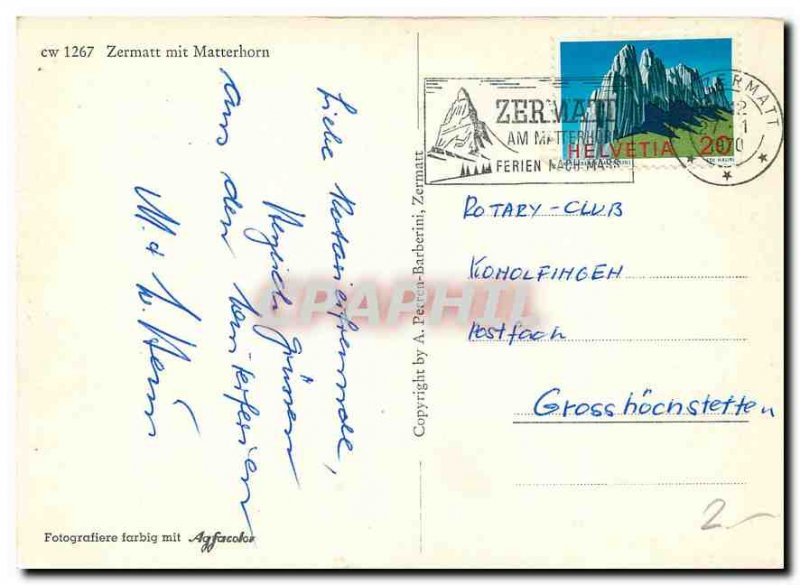 cw 1267 Zermatt mit Matterhorn
Liebe Rotarierfreunde,
Herzliche Grüsse
aus den Winterferien
M. + W.
Fotografiere farbig mit Agfacolor
Copyright by A. Perren-Barberini, Zermatt
ZERMATT
AM MATTERHORN
FERIEN NACH MASS
HELVETIA 20
ZERMATT
12
1
1970
ROTARY-CLUB
KONOLFINGEN
Postfach
Grosshöchstetten
2 -
CPAPHIL